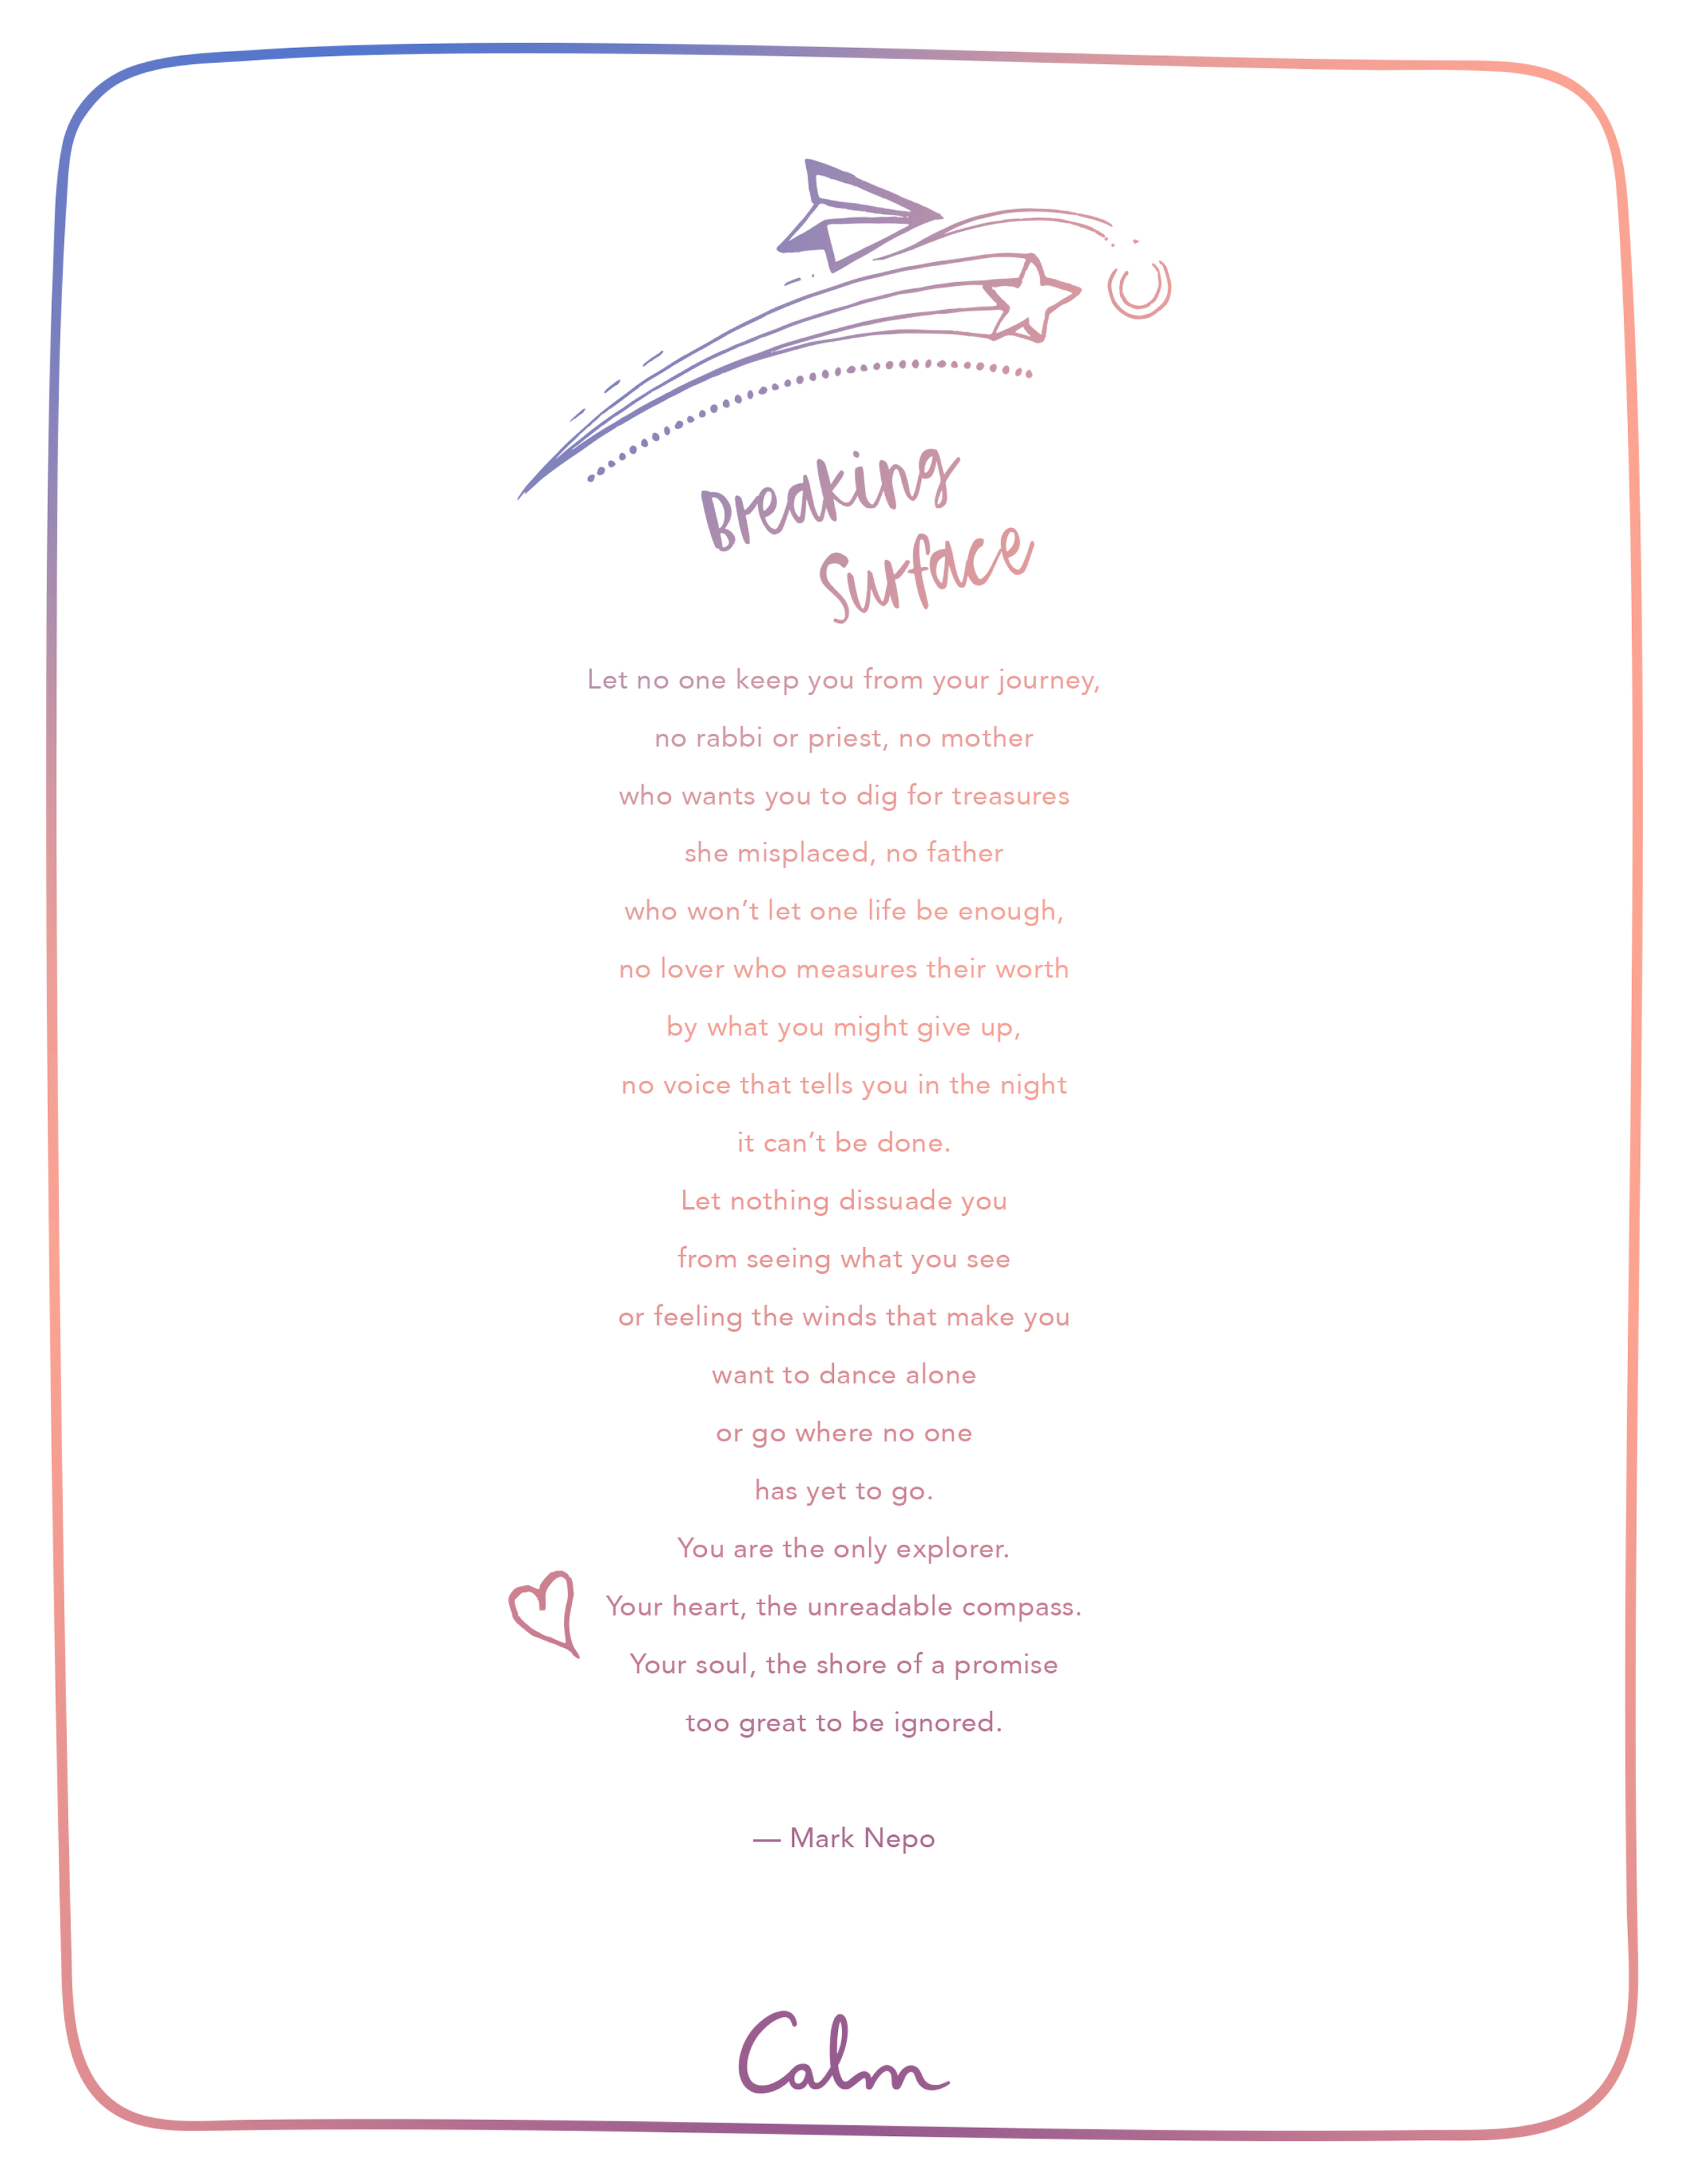 Breaking
Surface
Let no one keep you from your journey,
no rabbi or priest, no mother
who wants you to dig for treasures
she misplaced, no father
who won’t let one life be enough,
no lover who measures their worth
by what you might give up,
no voice that tells you in the night
it can’t be done.
Let nothing dissuade you
from seeing what you see
or feeling the winds that make you
want to dance alone
or go where no one
has yet to go.
You are the only explorer.
Your heart, the unreadable compass.
Your soul, the shore of a promise
too great to be ignored.
— Mark Nepo
Calm